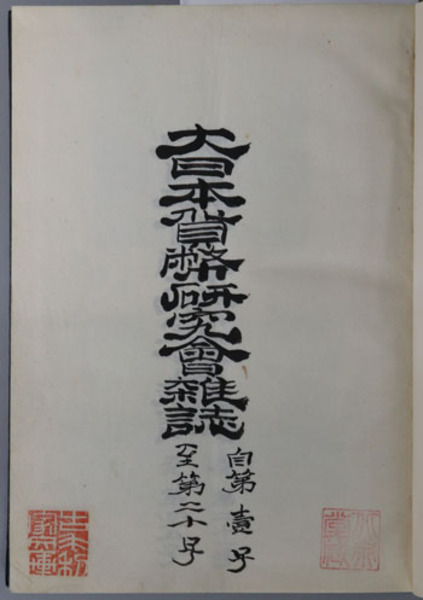 大日本貨幣研究會雑誌
自第壹号
至第二十号